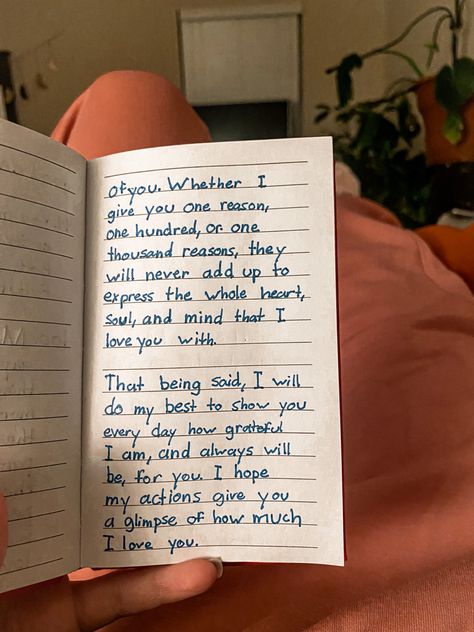 of you. Whether I
give you one reason,
one hundred, or one
thousand reasons, they
will never add up to
express the whole heart,
soul, and mind that I
love you with.
That being said, I will
do my best to show you
every day how grateful
I am, and always will
be, for you. I hope
my actions give you
a glimpse of how much
I love you.